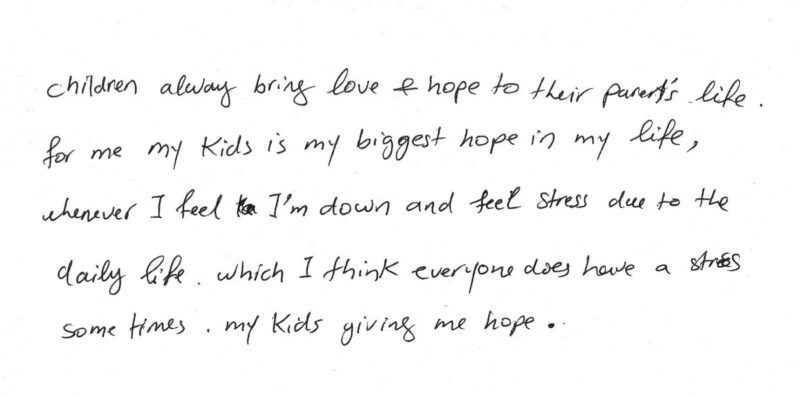 children alway bring love & hope to their parent's life.
for me my kids is my biggest hope in my life,
whenever I feel I'm down and feel stress due to the
daily life. which I think everyone does have a stress
some times. my kids giving me hope..